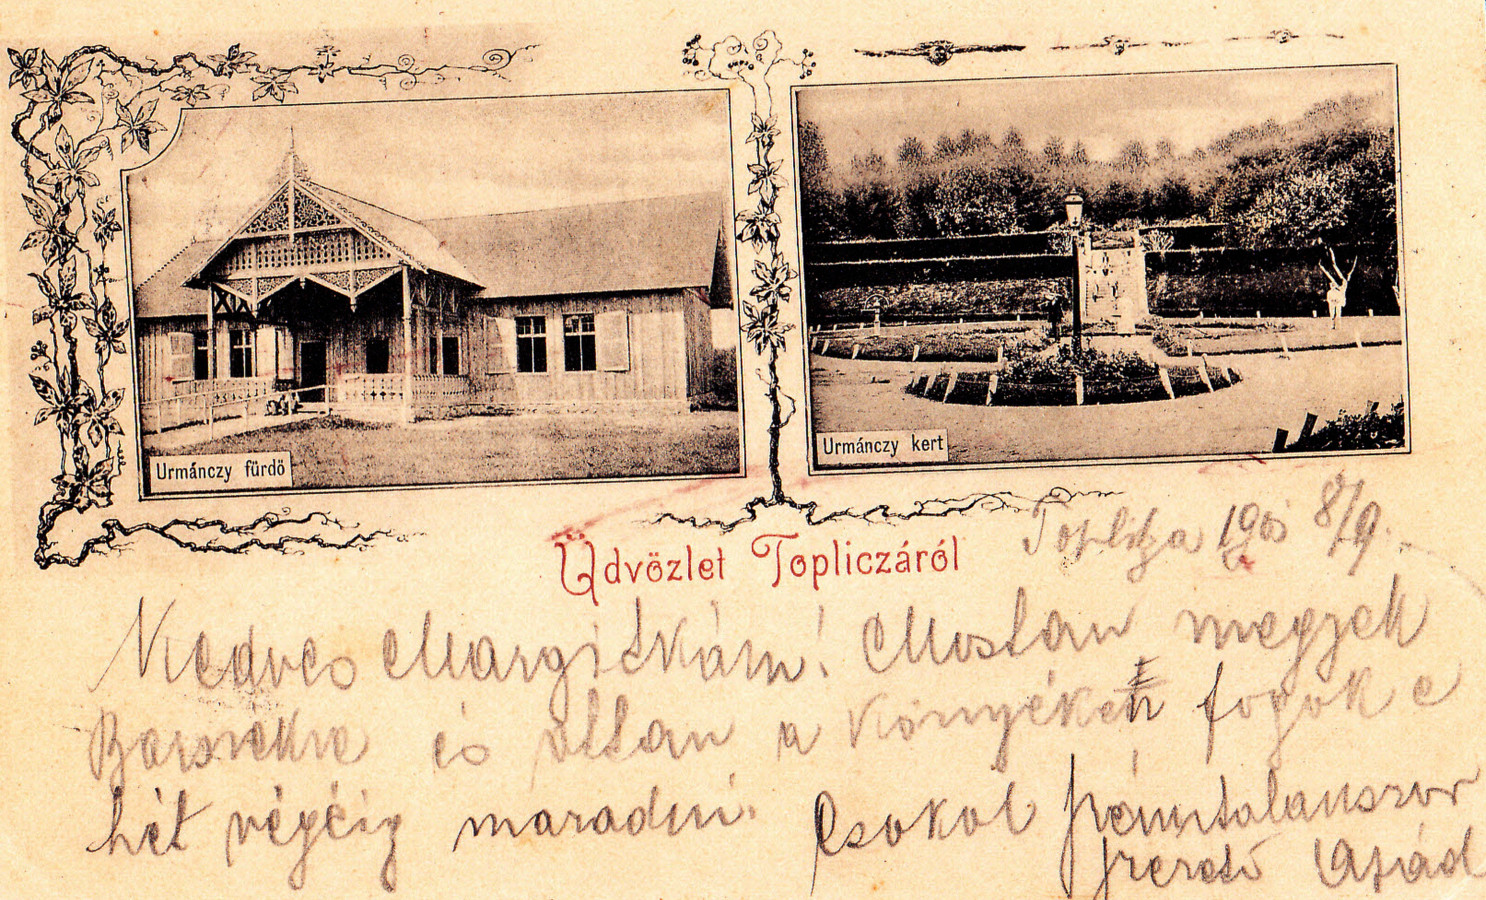 Urmánczy fürdő
Urmánczy kert
Üdvözlet Topliczáról
Toplitza 8/9.
Kedves Margitkám! Mostan megyek
és attan a környéken fogok e
hét végéig maradni. Csokol számtalanszor
szerető Apád